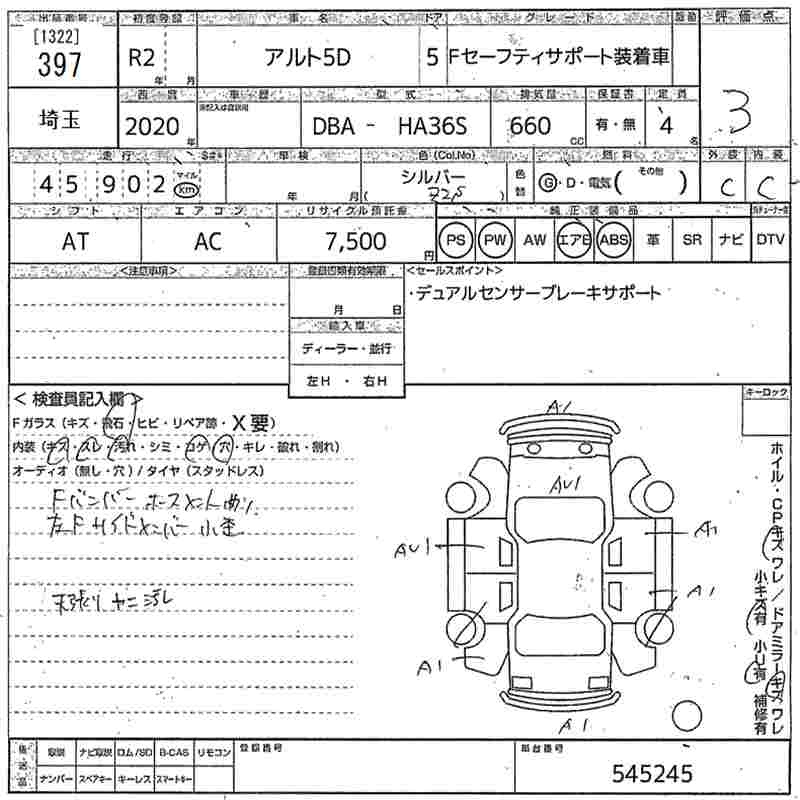 出品番号 初度登録 車名 ドア グレード 評価点
[1322]
397 R2 年 月 アルト5D 5 Fセーフティサポート装着車
西暦 車歴 型式 排気量 保証書 定員
埼玉 2020年 DBA - HA36S 660 cc 有・無 4名 3
走行 車検 色(Col,No) 燃料 外装 内装
45902 マイル km 年 月 シルバー ( Z2S ) 色替 G・D・電気( その他 ) C C
シフト エアコン リサイクル預託金 純正装備品
AT AC 7,500円 PS PW AW エアB ABS 革 SR ナビ DTV
<注意事項> <セールスポイント>
月 日 ・デュアルセンサーブレーキサポート
輸入車
ディーラー・並行
左H ・ 右H
<検査員記入欄> キーロック
Fガラス(キズ・飛石・ヒビ・リペア跡・X要)
内装(キズ・スレ・汚れ・シミ・コゲ・穴・キレ・破れ・割れ)
オーディオ(無し・穴)/タイヤ(スタッドレス)
Fバンパー ホースとんめり
左Fサイドメンバー 小歪
天張り ヤニ汚レ
A1
AU1
AU1 A1
A1
A1
A1
ホイル・CPキズワレ/ドアミラーキズワレ
小キズ有 小U有 補修有
後送品 取説 ナビ取説 ロム/SD B-CAS リモコン 登録番号 車台番号
ナンバー スペアキー キーレス スマートキー 545245